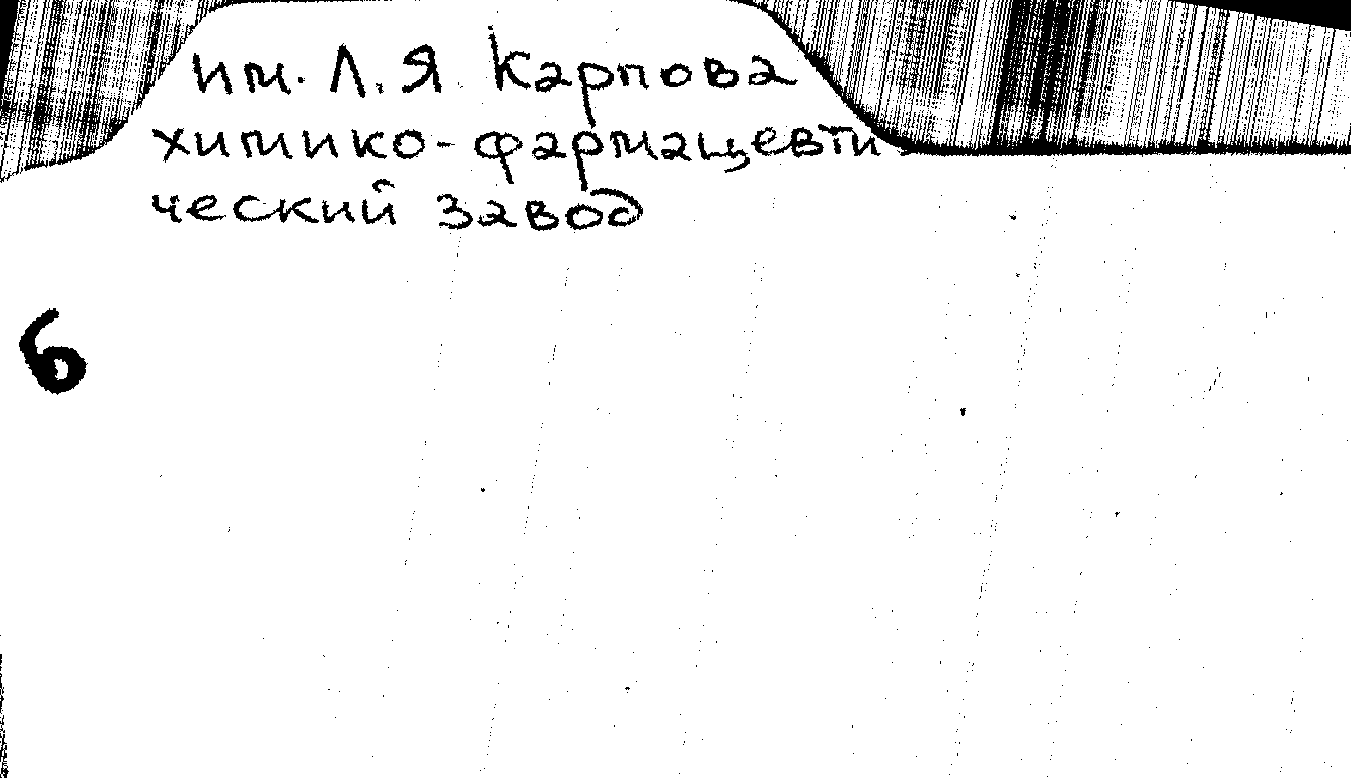 им. Л.Я Карпова
химико-фармацевти
ческий завод
6